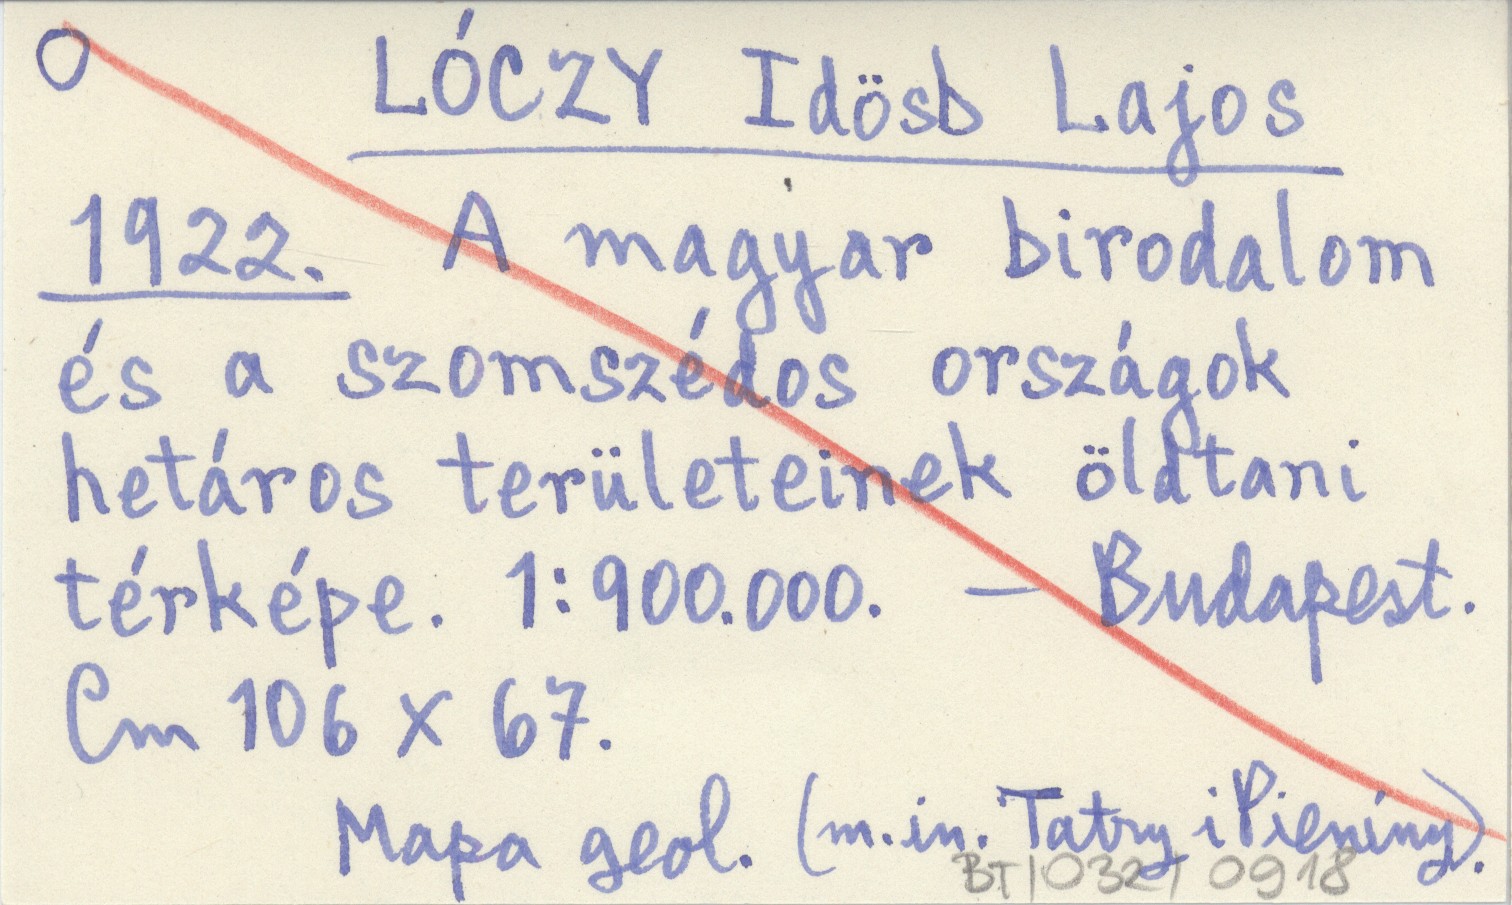 O LÓCZY Idösb Lajos
1922. A magyar birodalom
és a szomszédos országok
hetáros területeinek öldtani
térképe. 1:900.000. – Budapest.
Cm 106 x 67.
Mapa geol. (m.in. Tatry i Pieniny).
BT/032/0918